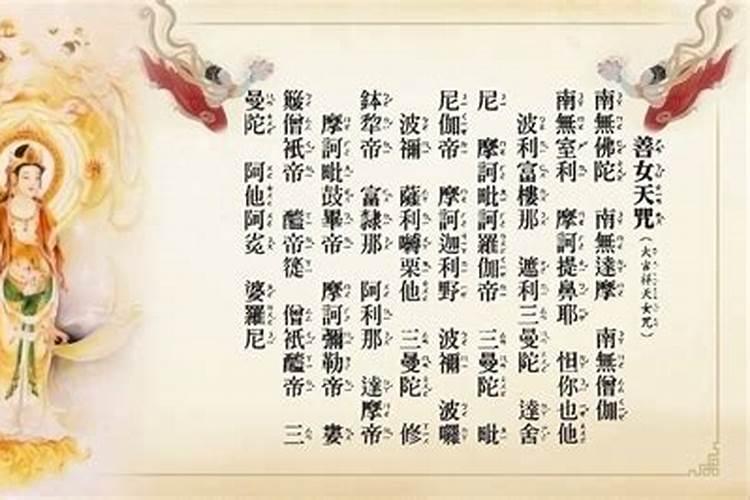 善女天咒(大吉祥天女咒)
南無佛陀　南無達摩　南無僧伽
南無室利　摩訶提鼻耶　怛你也他
波利富樓那　遮利三曼陀　達舍
尼　摩訶毗訶羅伽帝　三曼陀　毗
尼伽帝　摩訶迦利野　波禰　波囉
波禰　薩利嚩栗他　三曼陀　修
鉢犂帝　富隸那　阿利那　達摩帝
摩訶毗鼓畢帝　摩訶彌勒帝　婁
簸僧祇帝　醯帝簁　僧祇醯帝　三
曼陀　阿他阿㝹　婆羅尼